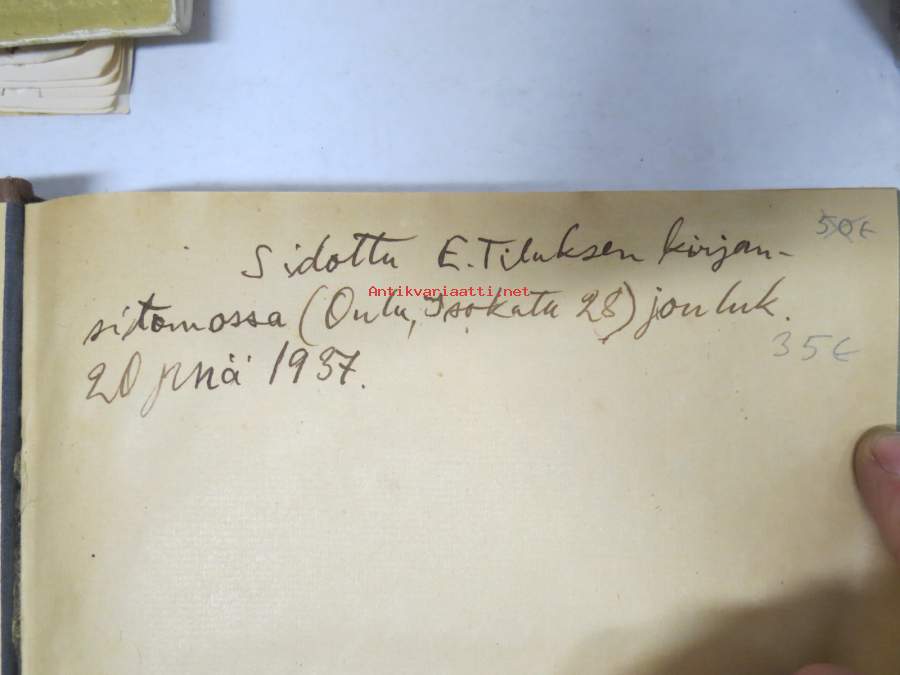 Sidottu E. Tiluksen kirjan-
sitomossa (Oulu, Isokatu 28) jouluk.
20 pnä 1937.
50€
35€
Antikvariaatti.net